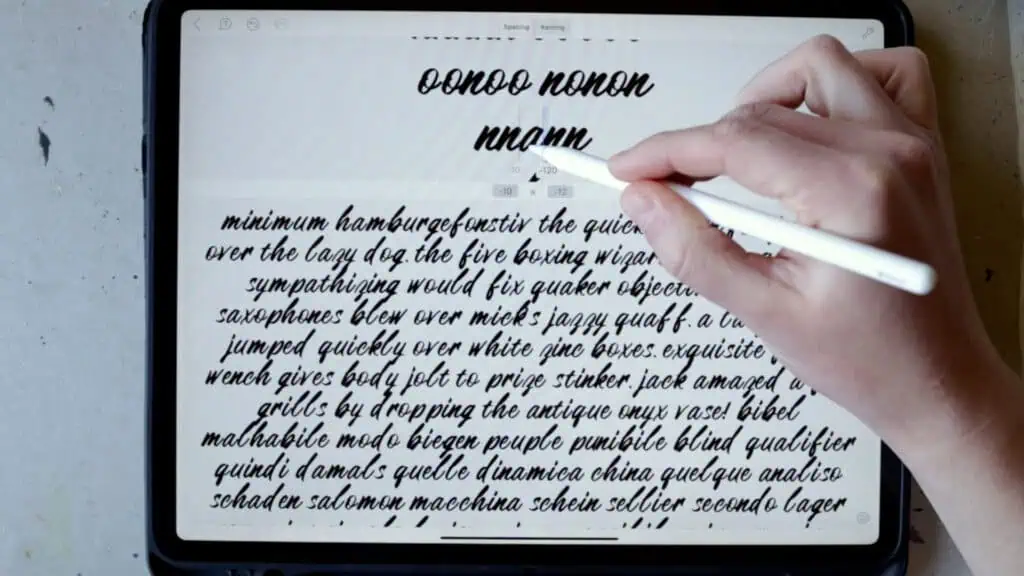 Spacing Kerning
oonoo nonon
nnann
-10 -120
-10 -12
minimum hamburgefonstiv the quick
over the lazy dog. the five boxing wizar
sympathizing would fix quaker objecti
saxophones blew over mick's jazzy quaff. a
jumped quickly over white zinc boxes. exquisite
wench gives body jolt to prize stinker. jack amazed a
grills by dropping the antique onyx vase! bibel
malhabile modo biegen peuple punibile blind qualifier
quindi damals quelle dinamica china quelque analiso
schaden salomon macchina schein sellier secondo lager